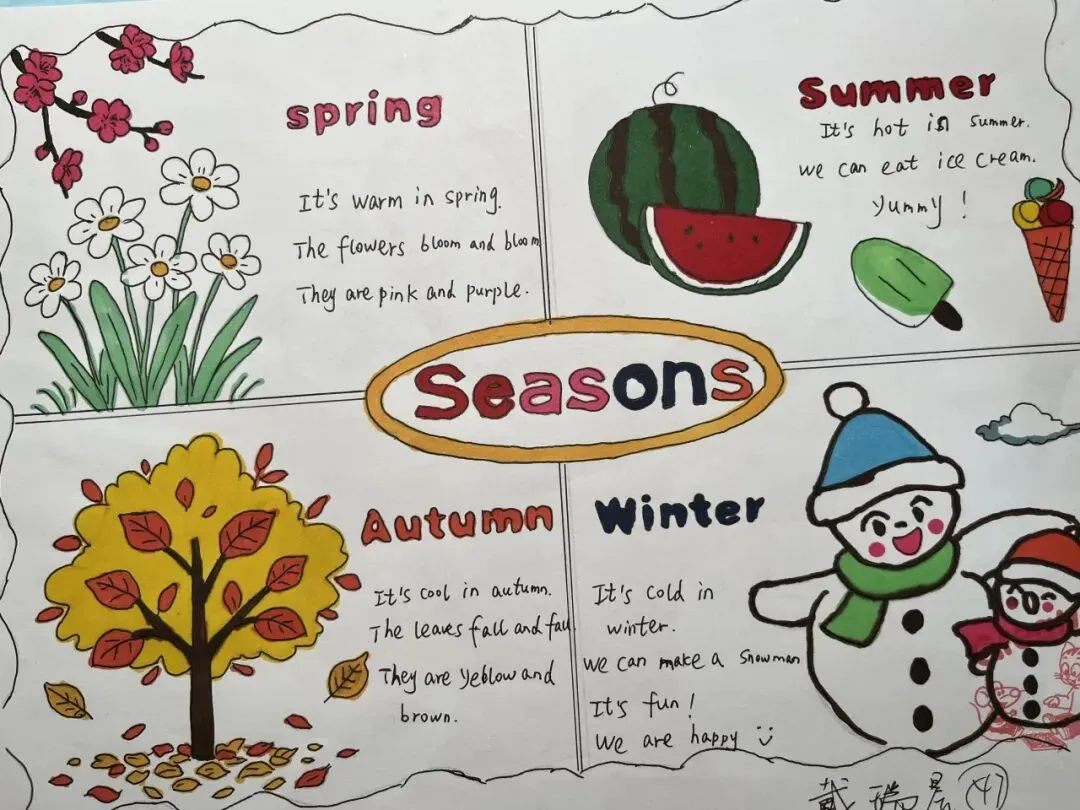 spring
It's warm in spring.
The flowers bloom and bloom
They are pink and purple.
Summer
It's hot in summer.
we can eat ice cream.
yummy!
Seasons
Autumn
It's cool in autumn.
The leaves fall and fall
They are yeblow and
brown.
Winter
It's cold in
winter.
we can make a snowman
It's fun!
we are happy
戴瑞